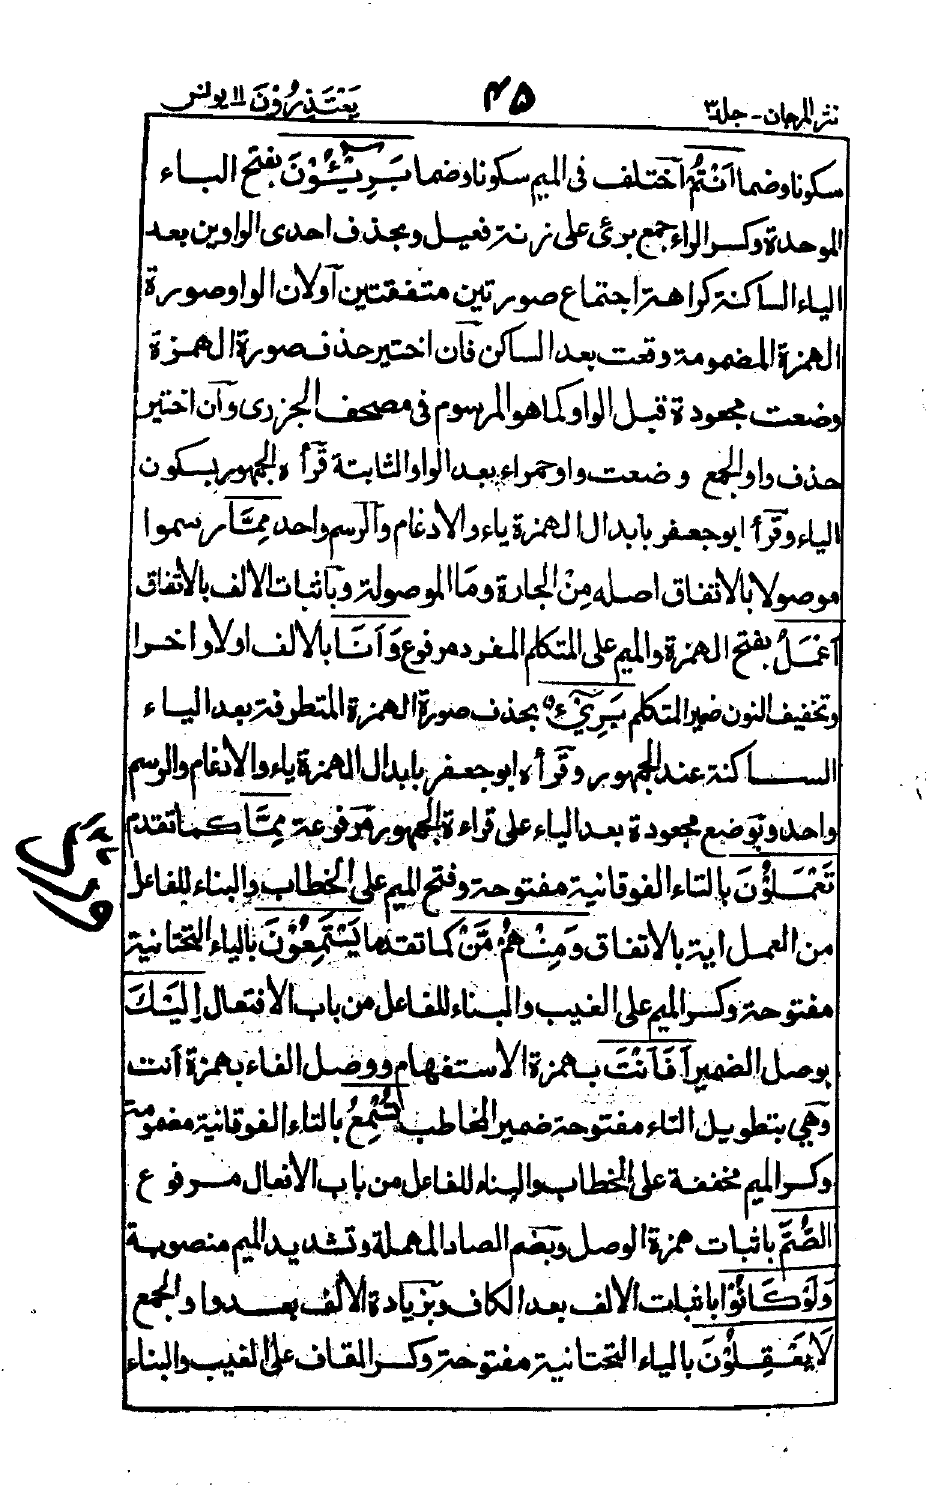 نثر المرجان - جلد ٣
٤٥
يَعْتَذِرُوْنَ ١١ يونس
سكونا وضما اَنْتُمْ اختلف فى الميم سكونا وضما بَرِيْٓئُوْنَ بفتح الباء
الموحدة وكسر الراء جمع برئ على زنة فعيل وبحذف احدى الواوين بعد
الياء الساكنة كراهة اجتماع صورتين متفقتين اولان الواو صورة
الهمزة المضمومة وقعت بعد الساكن فان اختير حذف صورة الهمزة
وضعت مجعودة قبل الواو كما هو المرسوم فى مصحف الجزرى وان اختير
حذف واو الجمع وضعت واو حمراء بعد الواو الثابتة قرأه الجمهور بسكون
الياء وقرأ ابو جعفر بابدال الهمزة ياء والادغام والرسم واحد مِمَّا رسموا
موصولا بالاتفاق اصله مِنْ الجارة ومَا الموصولة وباثبات الالف بالاتفاق
اَعْمَلُ بفتح الهمزة والميم على المتكلم المفرد مرفوع وَاَنَا بالالف اولا واخرا
وتخفيف النون ضمير المتكلم بَرِيْٓءٌ بحذف صورة الهمزة المتطرفة بعد الياء
الساكنة عند الجمهور وقرأه ابو جعفر بابدال الهمزة ياء والادغام والرسم
واحد وتوضع مجعودة بعد الياء على قراءة الجمهور مرفوعة مِمَّا كما تقدم
تَعْمَلُوْنَ بالتاء الفوقانية مفتوحة وفتح الميم على الخطاب والبناء للفاعل
من العمل اية بالاتفاق وَمِنْهُمْ مَّنْ كما تقدما يَسْتَمِعُوْنَ بالياء التحتانية
مفتوحة وكسر الميم على الغيب والبناء للفاعل من باب الافتعال اِلَيْكَ
بوصل الضمير اَفَاَنْتَ بهمزة الاستفهام ووصل الفاء بهمزة انت
وهى بتطويل التاء مفتوحة ضمير المخاطب تُسْمِعُ بالتاء الفوقانية مضمومة
وكسر الميم مخففة على الخطاب والبناء للفاعل من باب الافعال مرفوع
الصُّمَّ باثبات همزة الوصل وبضم الصاد المهملة وتشديد الميم منصوبة
وَلَوْ كَانُوْا باثبات الالف بعد الكاف وبزيادة الالف بعد واو الجمع
لَا يَعْقِلُوْنَ بالياء التحتانية مفتوحة وكسر القاف على الغيب والبناء